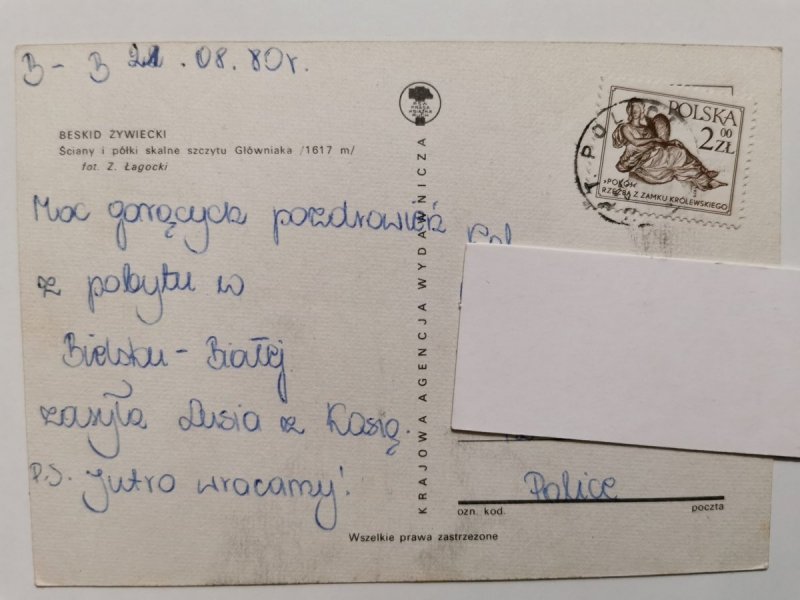 B-B 21.08.80r.
BESKID ŻYWIECKI
Ściany i półki skalne szczytu Główniaka /1617 m/
fot. Z. Łagocki
Moc gorących pozdrowień
z pobytu w
Bielsku-Białej
zasyła Lusia z Kasią.
P.S. Jutro wracamy!
KRAJOWA AGENCJA WYDAWNICZA
RSW PRASA KSIĄŻKA RUCH
POLSKA
2 00 ZŁ
»POKÓJ«
RZEŹBA Z ZAMKU KRÓLEWSKIEGO
Police
ozn. kod. poczta
Wszelkie prawa zastrzeżone